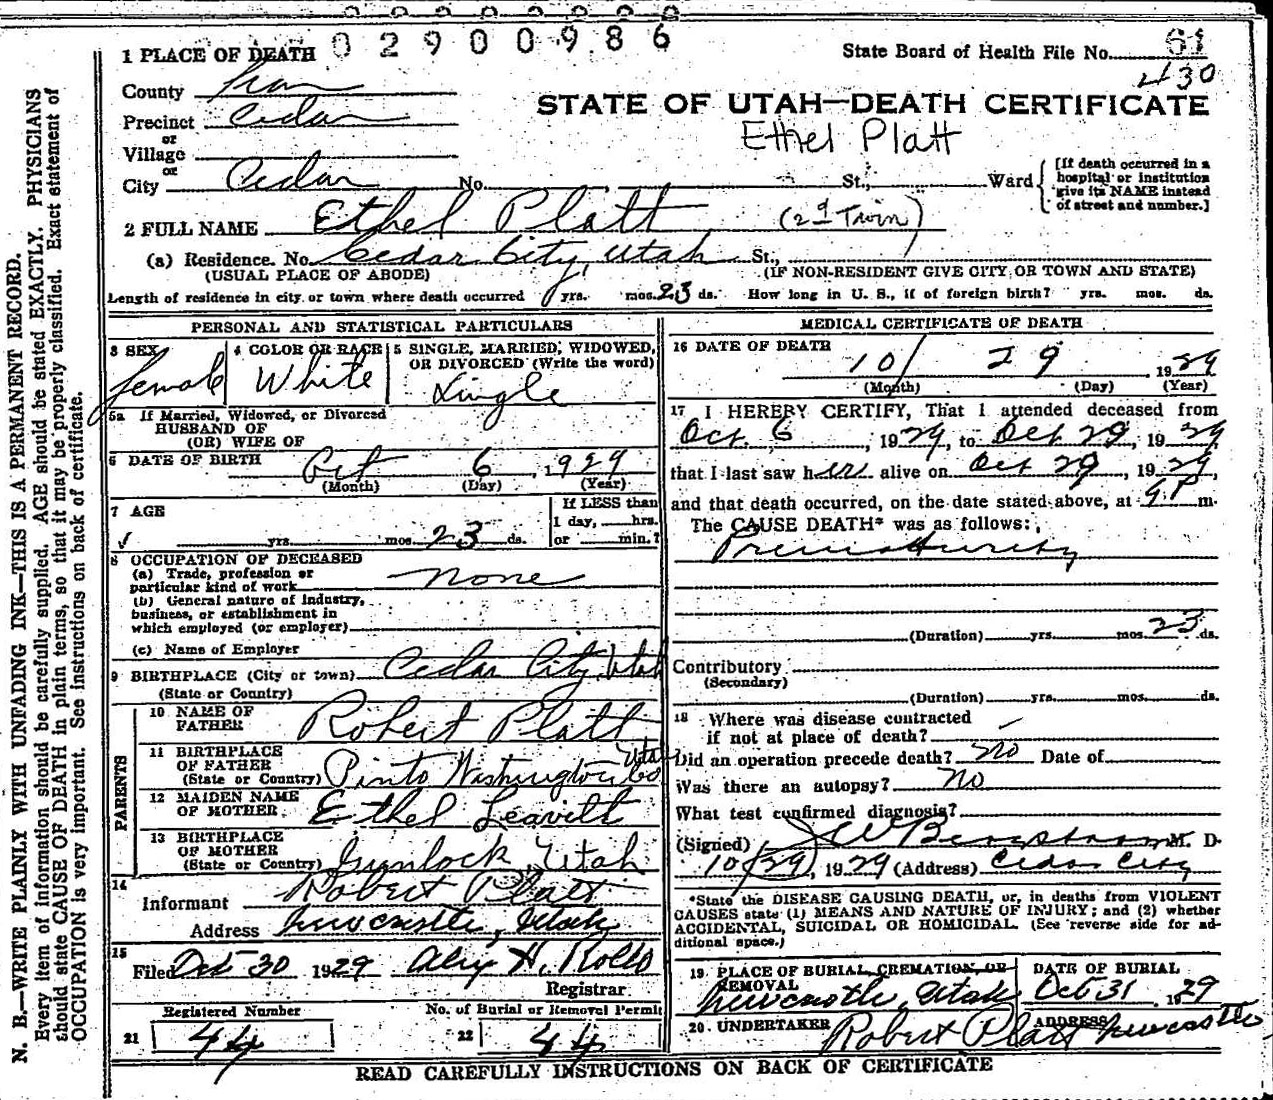 0 2 9 0 0 9 8 6
1 PLACE OF DEATH
State Board of Health File No. 61
430
County Iron
STATE OF UTAH—DEATH CERTIFICATE
Precinct Cedar
Ethel Platt
or
Village
or
City Cedar No. St., Ward
[If death occurred in a hospital or institution give its NAME instead of street and number.]
2 FULL NAME Ethel Platt (2d Twin)
(a) Residence. No. Cedar City, Utah St.,
(USUAL PLACE OF ABODE) (IF NON-RESIDENT GIVE CITY OR TOWN AND STATE)
Length of residence in city or town where death occurred yrs. mos. 23 ds. How long in U. S., if of foreign birth? yrs. mos. ds.
PERSONAL AND STATISTICAL PARTICULARS
3 SEX 4 COLOR OR RACE 5 SINGLE, MARRIED, WIDOWED,
OR DIVORCED (Write the word)
female White Single
5a If Married, Widowed, or Divorced
HUSBAND OF
(OR) WIFE OF
6 DATE OF BIRTH Oct 6, 1929
(Month) (Day) (Year)
7 AGE
yrs. mos. 23 ds.
If LESS than
1 day, hrs.
or min.?
8 OCCUPATION OF DECEASED
(a) Trade, profession or
particular kind of work none
(b) General nature of industry,
business, or establishment in
which employed (or employer)
(c) Name of Employer
9 BIRTHPLACE (City or town) Cedar City, Utah
(State or Country)
PARENTS
10 NAME OF
FATHER Robert Platt
11 BIRTHPLACE
OF FATHER
(State or Country) Pinto Washington Co Utah
12 MAIDEN NAME
OF MOTHER Ethel Leavitt
13 BIRTHPLACE
OF MOTHER
(State or Country) Gunlock, Utah
14
Informant Robert Platt
Address Newcastle, Utah
15
Filed Oct 30 1929 Alex H. Rollo
Registrar
Registered Number No. of Burial or Removal Permit
21 44 22 44
MEDICAL CERTIFICATE OF DEATH
16 DATE OF DEATH
10/ 29 1929
(Month) (Day) (Year)
17 I HEREBY CERTIFY, That I attended deceased from
Oct. 6, 1929, to Oct 29, 1929,
that I last saw her alive on Oct 29, 1929,
and that death occurred, on the date stated above, at 9 P m.
The CAUSE DEATH* was as follows:
Prematurity
(Duration) yrs. mos. 23 ds.
Contributory
(Secondary)
(Duration) yrs. mos. ds.
18 Where was disease contracted
if not at place of death? —
Did an operation precede death? No Date of
Was there an autopsy? No
What test confirmed diagnosis?
(Signed) M. D.
10/29, 1929 (Address) Cedar City
*State the DISEASE CAUSING DEATH, or, in deaths from VIOLENT
CAUSES state (1) MEANS AND NATURE OF INJURY; and (2) whether
ACCIDENTAL, SUICIDAL OR HOMICIDAL. (See reverse side for ad-
ditional space.)
19 PLACE OF BURIAL, CREMATION, OR
REMOVAL DATE OF BURIAL
Newcastle, Utah Oct 31, 1929
20 UNDERTAKER ADDRESS
Robert Platt Newcastle
READ CAREFULLY INSTRUCTIONS ON BACK OF CERTIFICATE
N. B.—WRITE PLAINLY WITH UNFADING INK—THIS IS A PERMANENT RECORD.
Every item of information should be carefully supplied. AGE should be stated EXACTLY. PHYSICIANS
should state CAUSE OF DEATH in plain terms, so that it may be properly classified. Exact statement of
OCCUPATION is very important. See instructions on back of certificate.